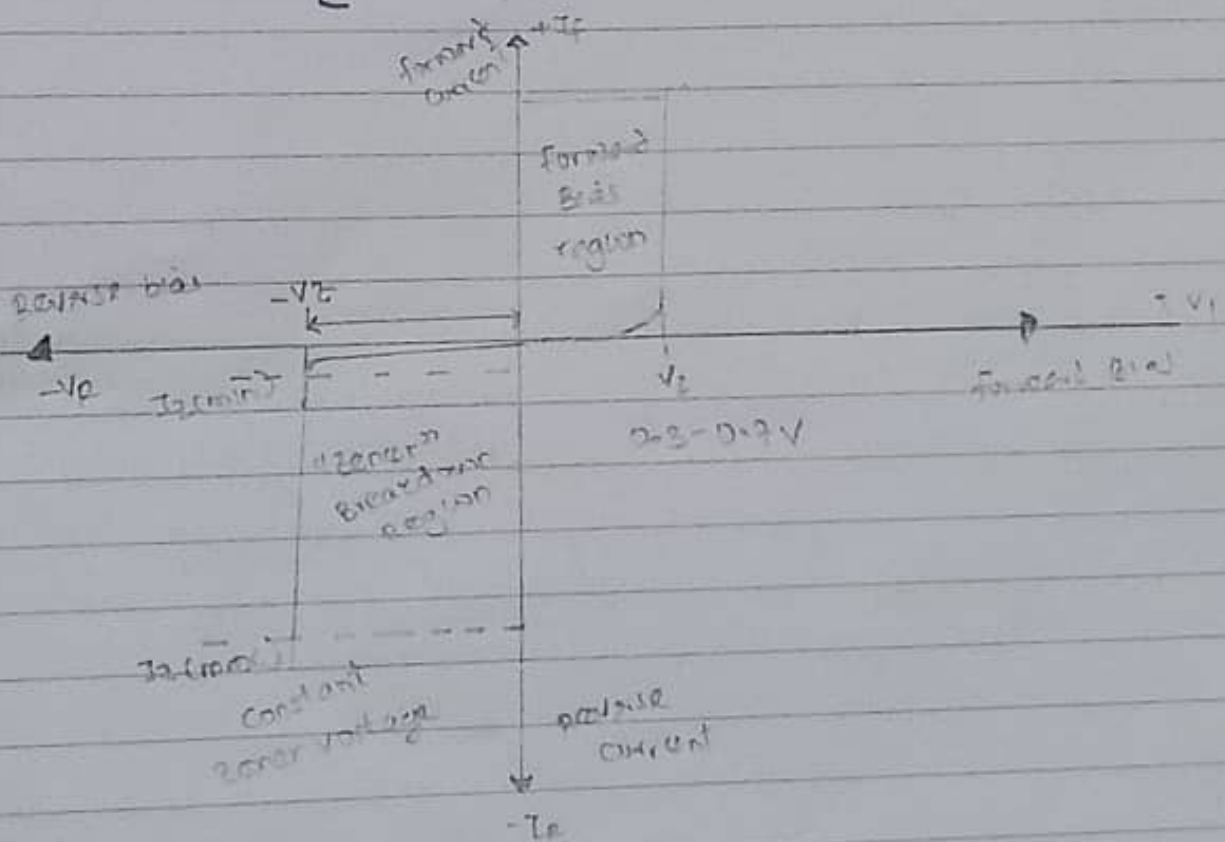 forward
current
+IF
Forward
Bias
region
Reverse bias
-VZ
-VR
Iz(min)
Vz
0.3-0.7V
Forward Bias
"Zener"
Breakdown
Region
Iz(max)
Constant
zener voltage
Reverse
current
-IR